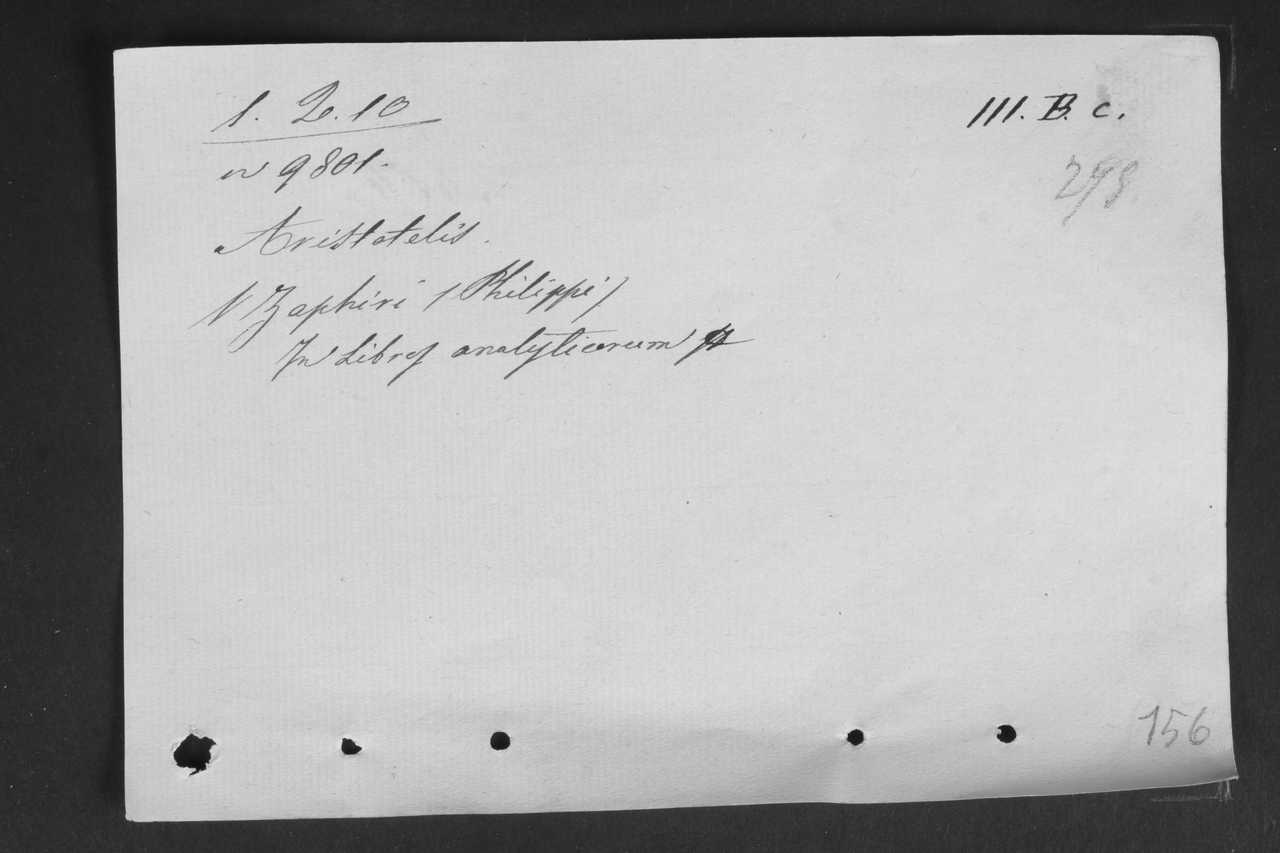 1. 2. 10
III. B. c.
n 9801.
Aristotelis.
V Zaphiri (Philippi)
In Libros analyticorum
156